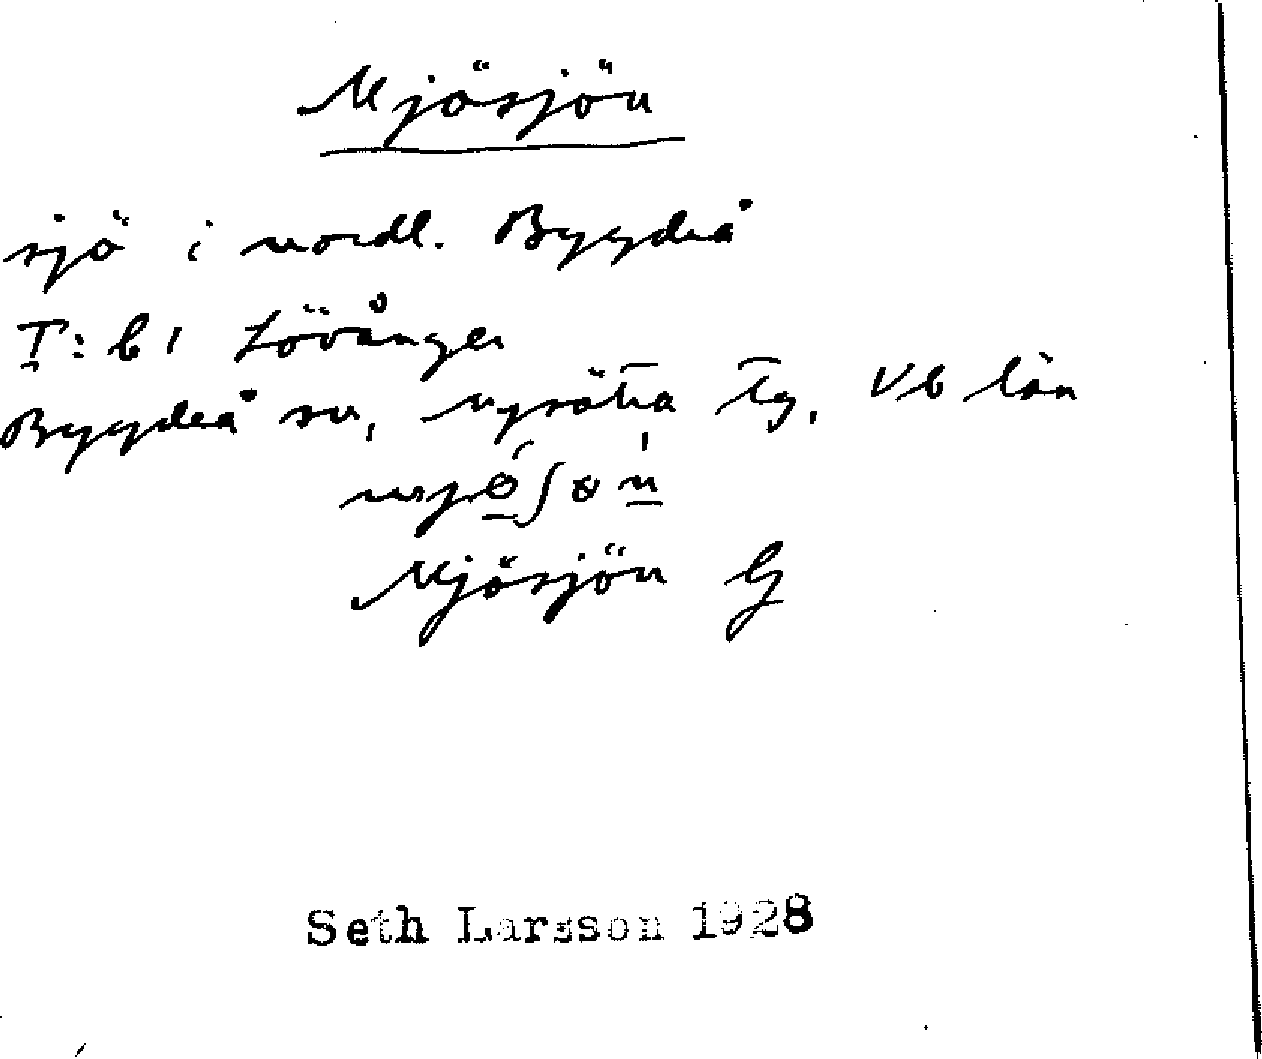 Mjösjön
sjö i nordl. Bygdeå
T: bl Lövånger
Bygdeå sn, Nysätra tg, Vb län
Mjösjön G
Seth Larsson 1928